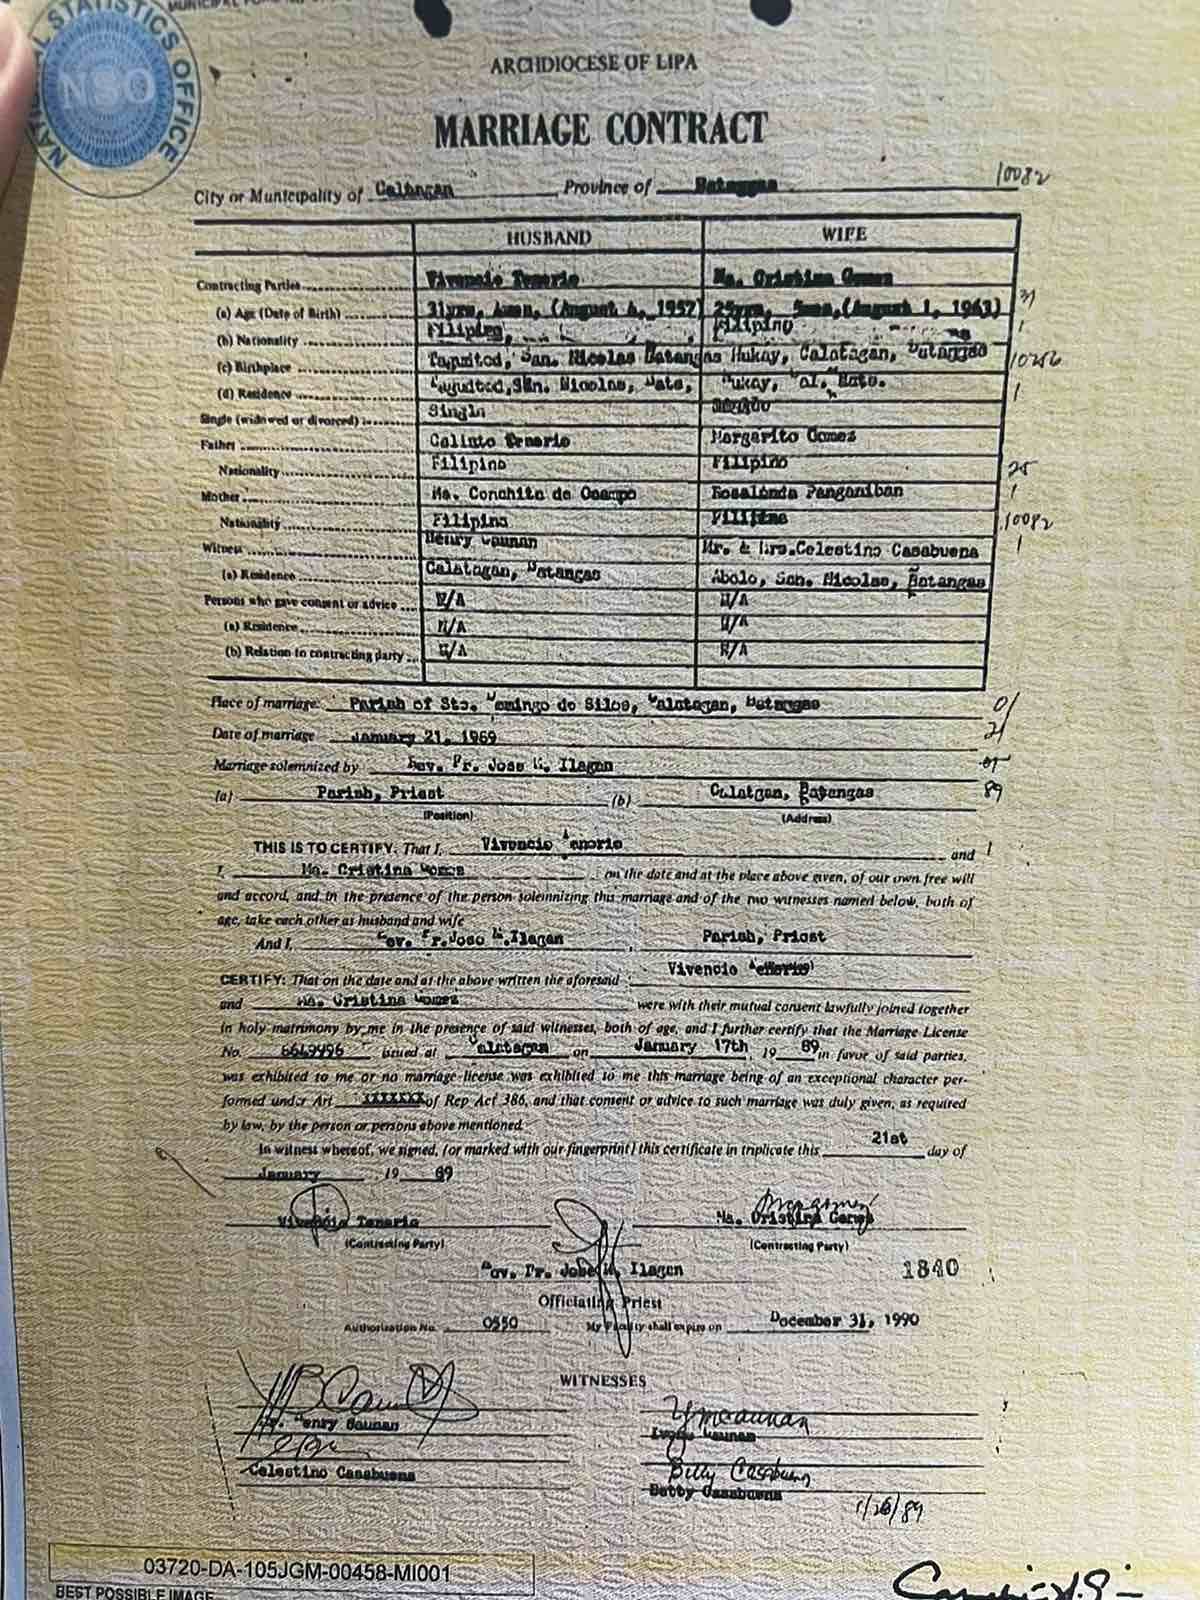 NATIONAL STATISTICS OFFICE
NSO
ARCHDIOCESE OF LIPA
MARRIAGE CONTRACT
City or Municipality of Calatagan Province of Batangas 10082
HUSBAND WIFE
Contracting Parties Vivencio Tenorio Ma. Cristina Gomez
(a) Age (Date of Birth) 31yrs, (August 1957) 25yrs, 5mos, (August 1, 1963) 31
(b) Nationality Filipino, Filipino 1
(c) Birthplace San. Nicolas Batangas Hukay, Calatagan, Batangas
(d) Residence Nicolas, Bats, Hukay, Cal. Bats. 1
Single (widowed or divorced) Single
Father Margarito Gomez
Nationality Filipino Filipino 25
Mother Ma. Conchita de Ocampo Panganiban 1
Nationality Filipino Filipino 10082
Witness Henry Mr. & Mrs. Celestino Casabuena 1
(a) Residence Calatagan, Batangas Abelo, San. Nicolas, Batangas
Persons who gave consent or advice N/A N/A
(a) Residence N/A N/A
(b) Relation to contracting party N/A N/A
Place of marriage: Parish of Sto. Domingo de Silos, Calatagan, Batangas 01
Date of marriage January 21, 1989 21
Marriage solemnized by Rev. Fr. Jose Ilagan
(a) Parish, Priest (b) Calatgan, Batangas 89
(Position) (Address)
THIS IS TO CERTIFY. That I, Vivencio Tenorio and 1
I, Ma. Cristina Gomez on the date and at the place above given, of our own free will
and accord, and in the presence of the person solemnizing this marriage and of the two witnesses named below, both of
age, take each other as husband and wife
And I, Rev. Fr. Jose Ilagan, Parish, Priest
CERTIFY: That on the date and at the above written the aforesaid Vivencio Tenorio
and Ma. Cristina Gomez were with their mutual consent lawfully joined together
in holy matrimony by me in the presence of said witnesses, both of age, and I further certify that the Marriage License
No. issued at Calatagan on January 17th, 19 89 in favor of said parties,
was exhibited to me or no marriage license was exhibited to me this marriage being of an exceptional character per-
formed under Art XXXXXXX of Rep Act 386, and that consent or advice to such marriage was duly given, as required
by law, by the person or persons above mentioned.
In witness whereof, we signed, (or marked with our fingerprint) this certificate in triplicate this 21st day of
January, 19 89
Vivencio Tenorio Ma. Cristina Gomez
(Contracting Party) (Contracting Party)
Rev. Fr. Jose Ilagan 1840
Officiating Priest
Authorization No. 0550 My Faculty shall expire on December 31, 1990
WITNESSES
Henry
Celestino Casabuena Betty Casabuena
Betty Casabuena
03720-DA-105JGM-00458-MI001
BEST POSSIBLE IMAGE